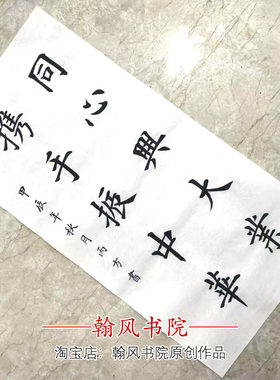 同心興大業
携手振中華
甲辰年秋月丙方書
翰风书院
淘宝店：翰风书院原创作品